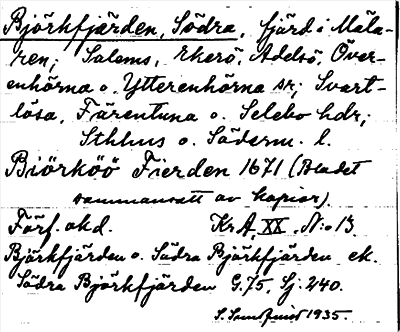 Björkfjärden, Södra, fjärd i Mäla-
ren; Salems, Ekerö, Adelsö, Över-
enhörna o. Ytterenhörna sr; Svart-
lösa, Färentuna o. Selebo hdr;
Sthlms o. Söderm. l.
Biörköö Fierden 1671 (Bladet
sammansatt av kopior).
Förf. okd. KrA, XX. N:o 13.
Björkfjärden o. Södra Björkfjärden ek.
Södra Björkfjärden G.75, Sj. 240.
S. Sundquist 1935.